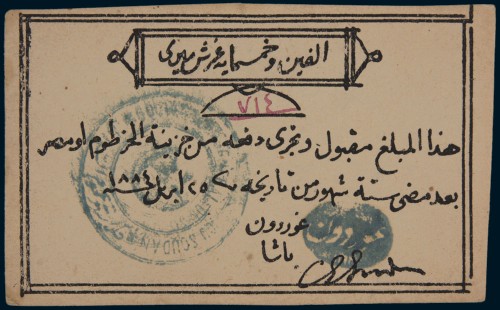 الفين وخمسمايه غرش ميرى
٧١٤
هذا المبلغ مقبول وتجرى دفعه من خزينة الخرطوم او مصر
بعد مضى ستة شهور من تاريخه ٢٥ ابريل ١٨٨٤
غوردون
باشا
غوردون
SOUDAN